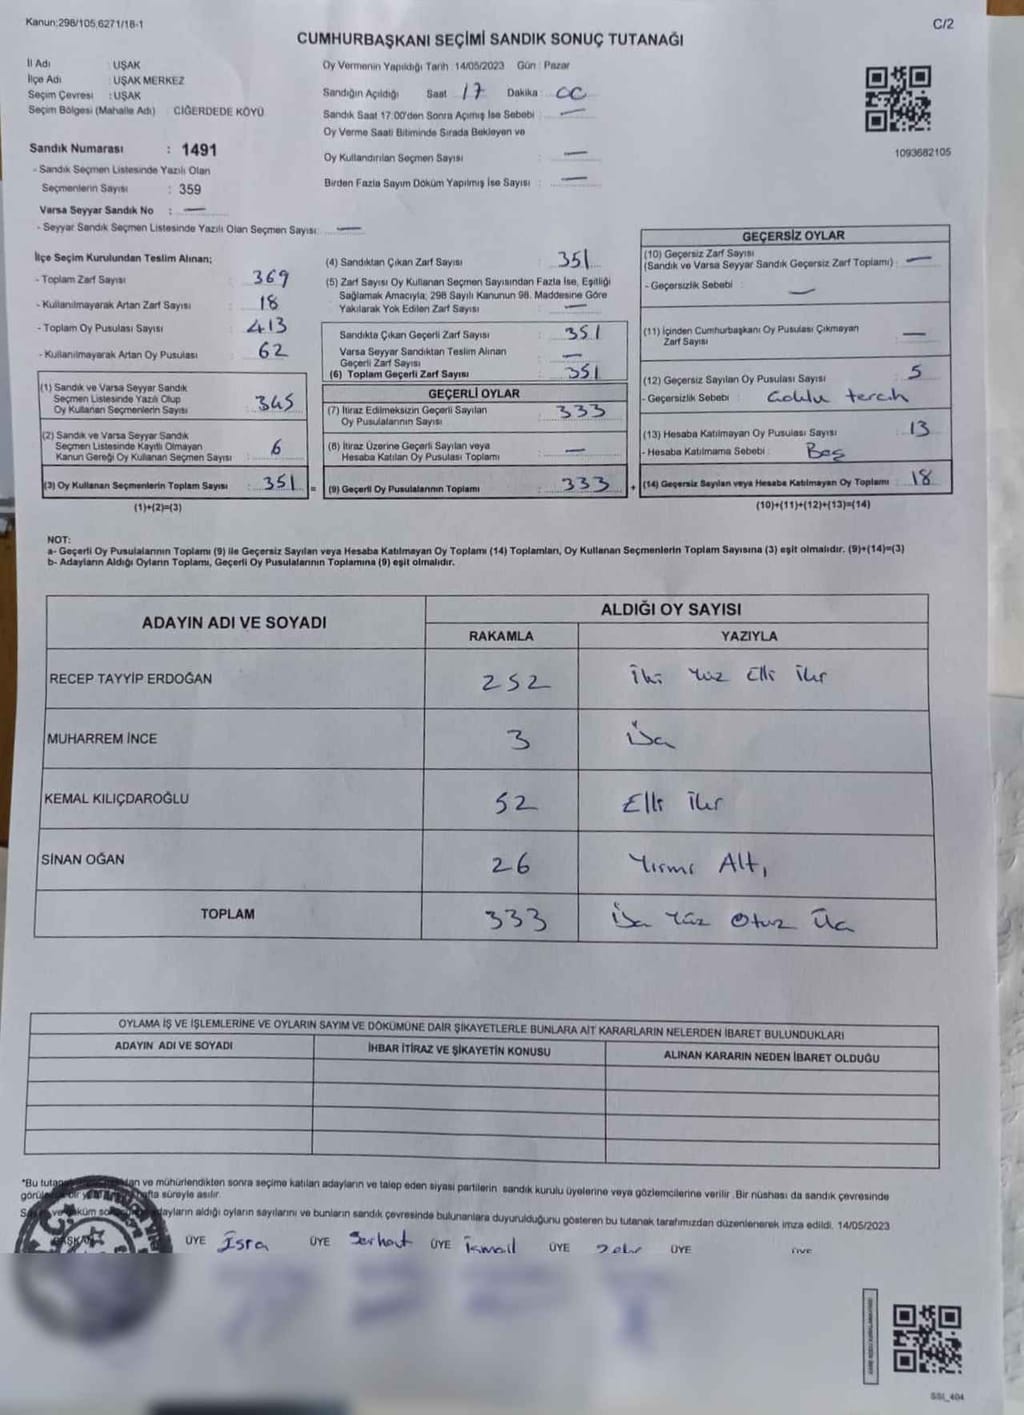 Kanun:298/105,6271/18-1
C/2
CUMHURBAŞKANI SEÇİMİ SANDIK SONUÇ TUTANAĞI
İl Adı : UŞAK
İlçe Adı : UŞAK MERKEZ
Seçim Çevresi : UŞAK
Seçim Bölgesi (Mahalle Adı) CİĞERDEDE KÖYÜ
Sandık Numarası : 1491
- Sandık Seçmen Listesinde Yazılı Olan
Seçmenlerin Sayısı : 359
Varsa Seyyar Sandık No : —
- Seyyar Sandık Seçmen Listesinde Yazılı Olan Seçmen Sayısı: —
Oy Vermenin Yapıldığı Tarih :14/05/2023 Gün : Pazar
Sandığın Açıldığı Saat 17 Dakika : 00
Sandık Saat 17:00'den Sonra Açımış İse Sebebi : —
Oy Verme Saati Bitiminde Sırada Bekleyen ve
Oy Kullandırılan Seçmen Sayısı : —
Birden Fazla Sayım Döküm Yapılmış İse Sayısı : —
1093682105
İlçe Seçim Kurulundan Teslim Alınan;
- Toplam Zarf Sayısı : 369
- Kullanılmayarak Artan Zarf Sayısı : 18
- Toplam Oy Pusulası Sayısı : 413
- Kullanılmayarak Artan Oy Pusulası : 62
(1) Sandık ve Varsa Seyyar Sandık
Seçmen Listesinde Yazılı Olup
Oy Kullanan Seçmenlerin Sayısı : 345
(2) Sandık ve Varsa Seyyar Sandık
Seçmen Listesinde Kayıtlı Olmayan
Kanun Gereği Oy Kullanan Seçmen Sayısı : 6
(3) Oy Kullanan Seçmenlerin Toplam Sayısı : 351 =
(1)+(2)=(3)
(4) Sandıktan Çıkan Zarf Sayısı : 351
(5) Zarf Sayısı Oy Kullanan Seçmen Sayısından Fazla İse, Eşitliği
Sağlamak Amacıyla; 298 Sayılı Kanunun 98. Maddesine Göre
Yakılarak Yok Edilen Zarf Sayısı : —
Sandıkta Çıkan Geçerli Zarf Sayısı : 351
Varsa Seyyar Sandıktan Teslim Alınan
Geçerli Zarf Sayısı : —
(6) Toplam Geçerli Zarf Sayısı : 351
GEÇERLİ OYLAR
(7) İtiraz Edilmeksizin Geçerli Sayılan
Oy Pusulalarının Sayısı : 333
(8) İtiraz Üzerine Geçerli Sayılan veya
Hesaba Katılan Oy Pusulası Toplamı : —
(9) Geçerli Oy Pusulalarının Toplamı : 333 +
GEÇERSİZ OYLAR
(10) Geçersiz Zarf Sayısı
(Sandık ve Varsa Seyyar Sandık Geçersiz Zarf Toplamı) : —
- Geçersizlik Sebebi : —
(11) İçinden Cumhurbaşkanı Oy Pusulası Çıkmayan
Zarf Sayısı : —
(12) Geçersiz Sayılan Oy Pusulası Sayısı : 5
- Geçersizlik Sebebi : Çoklu tercih
(13) Hesaba Katılmayan Oy Pusulası Sayısı : 13
- Hesaba Katılmama Sebebi : Boş
(14) Geçersiz Sayılan veya Hesaba Katılmayan Oy Toplamı : 18
(10)+(11)+(12)+(13)=(14)
NOT:
a- Geçerli Oy Pusulalarının Toplamı (9) ile Geçersiz Sayılan veya Hesaba Katılmayan Oy Toplamı (14) Toplamları, Oy Kullanan Seçmenlerin Toplam Sayısına (3) eşit olmalıdır. (9)+(14)=(3)
b- Adayların Aldığı Oyların Toplamı, Geçerli Oy Pusulalarının Toplamına (9) eşit olmalıdır.
ADAYIN ADI VE SOYADI ALDIĞI OY SAYISI
RAKAMLA YAZIYLA
RECEP TAYYİP ERDOĞAN 252 İki Yüz Elli İki
MUHARREM İNCE 3 Üç
KEMAL KILIÇDAROĞLU 52 Elli İki
SİNAN OĞAN 26 Yirmi Altı
TOPLAM 333 Üç Yüz Otuz Üç
OYLAMA İŞ VE İŞLEMLERİNE VE OYLARIN SAYIM VE DÖKÜMÜNE DAİR ŞİKAYETLERLE BUNLARA AİT KARARLARIN NELERDEN İBARET BULUNDUKLARI
ADAYIN ADI VE SOYADI İHBAR İTİRAZ VE ŞİKAYETİN KONUSU ALINAN KARARIN NEDEN İBARET OLDUĞU
*Bu ve mühürlendikten sonra seçime katılan adayların ve talep eden siyasi partilerin sandık kurulu üyelerine veya gözlemcilerine verilir. Bir nüshası da sandık çevresinde
süreyle asılır.
adayların aldığı oyların sayılarını ve bunların sandık çevresinde bulunanlara duyurulduğunu gösteren bu tutanak tarafımızdan düzenlenerek imza edildi. 14/05/2023
BAŞKAN ÜYE Esra ÜYE Serhat ÜYE İsmail ÜYE ÜYE ÜYE
SSI_404